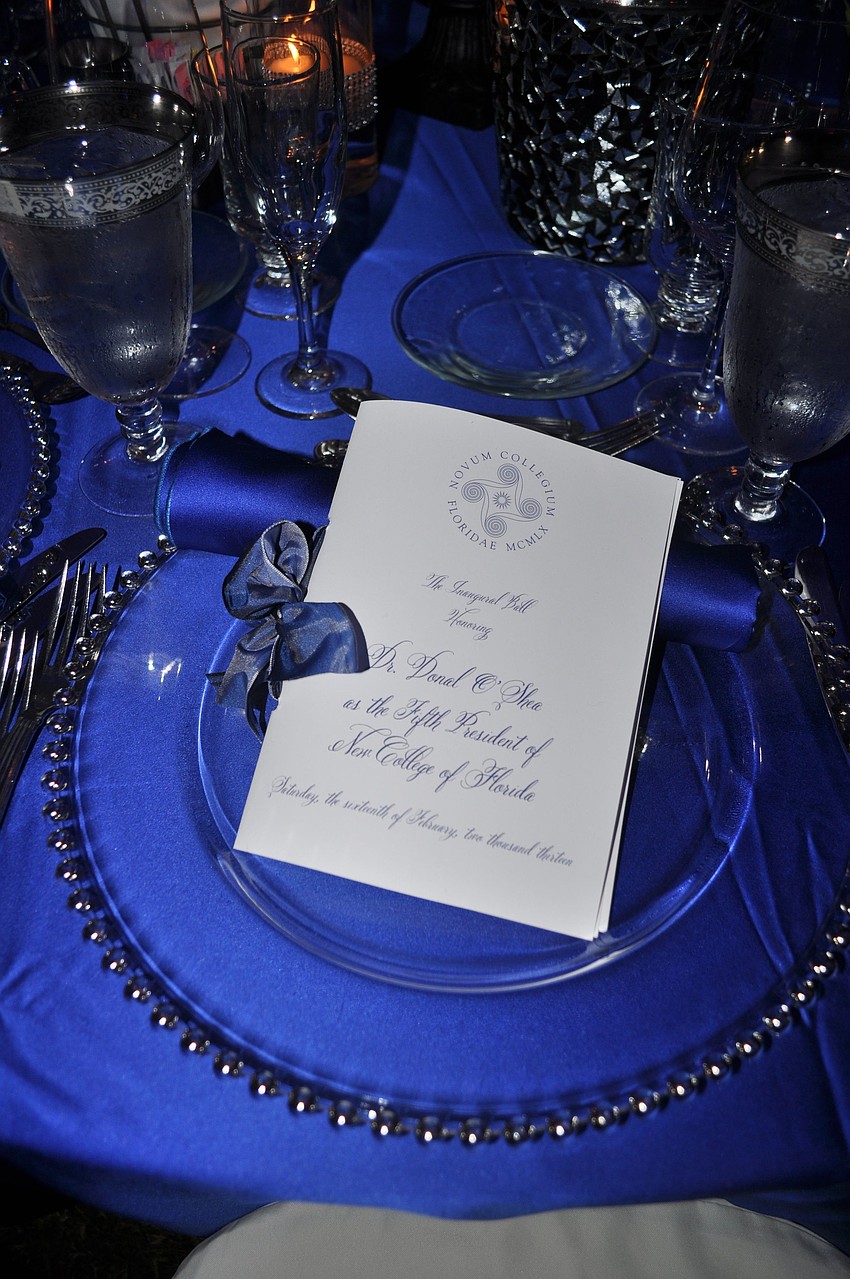 NOVUM COLLEGIUM
FLORIDAE MCMLX
The Inaugural Ball
Honoring
Dr. Donal O'Shea
as the Fifth President of
New College of Florida
Saturday, the sixteenth of February, two thousand thirteen